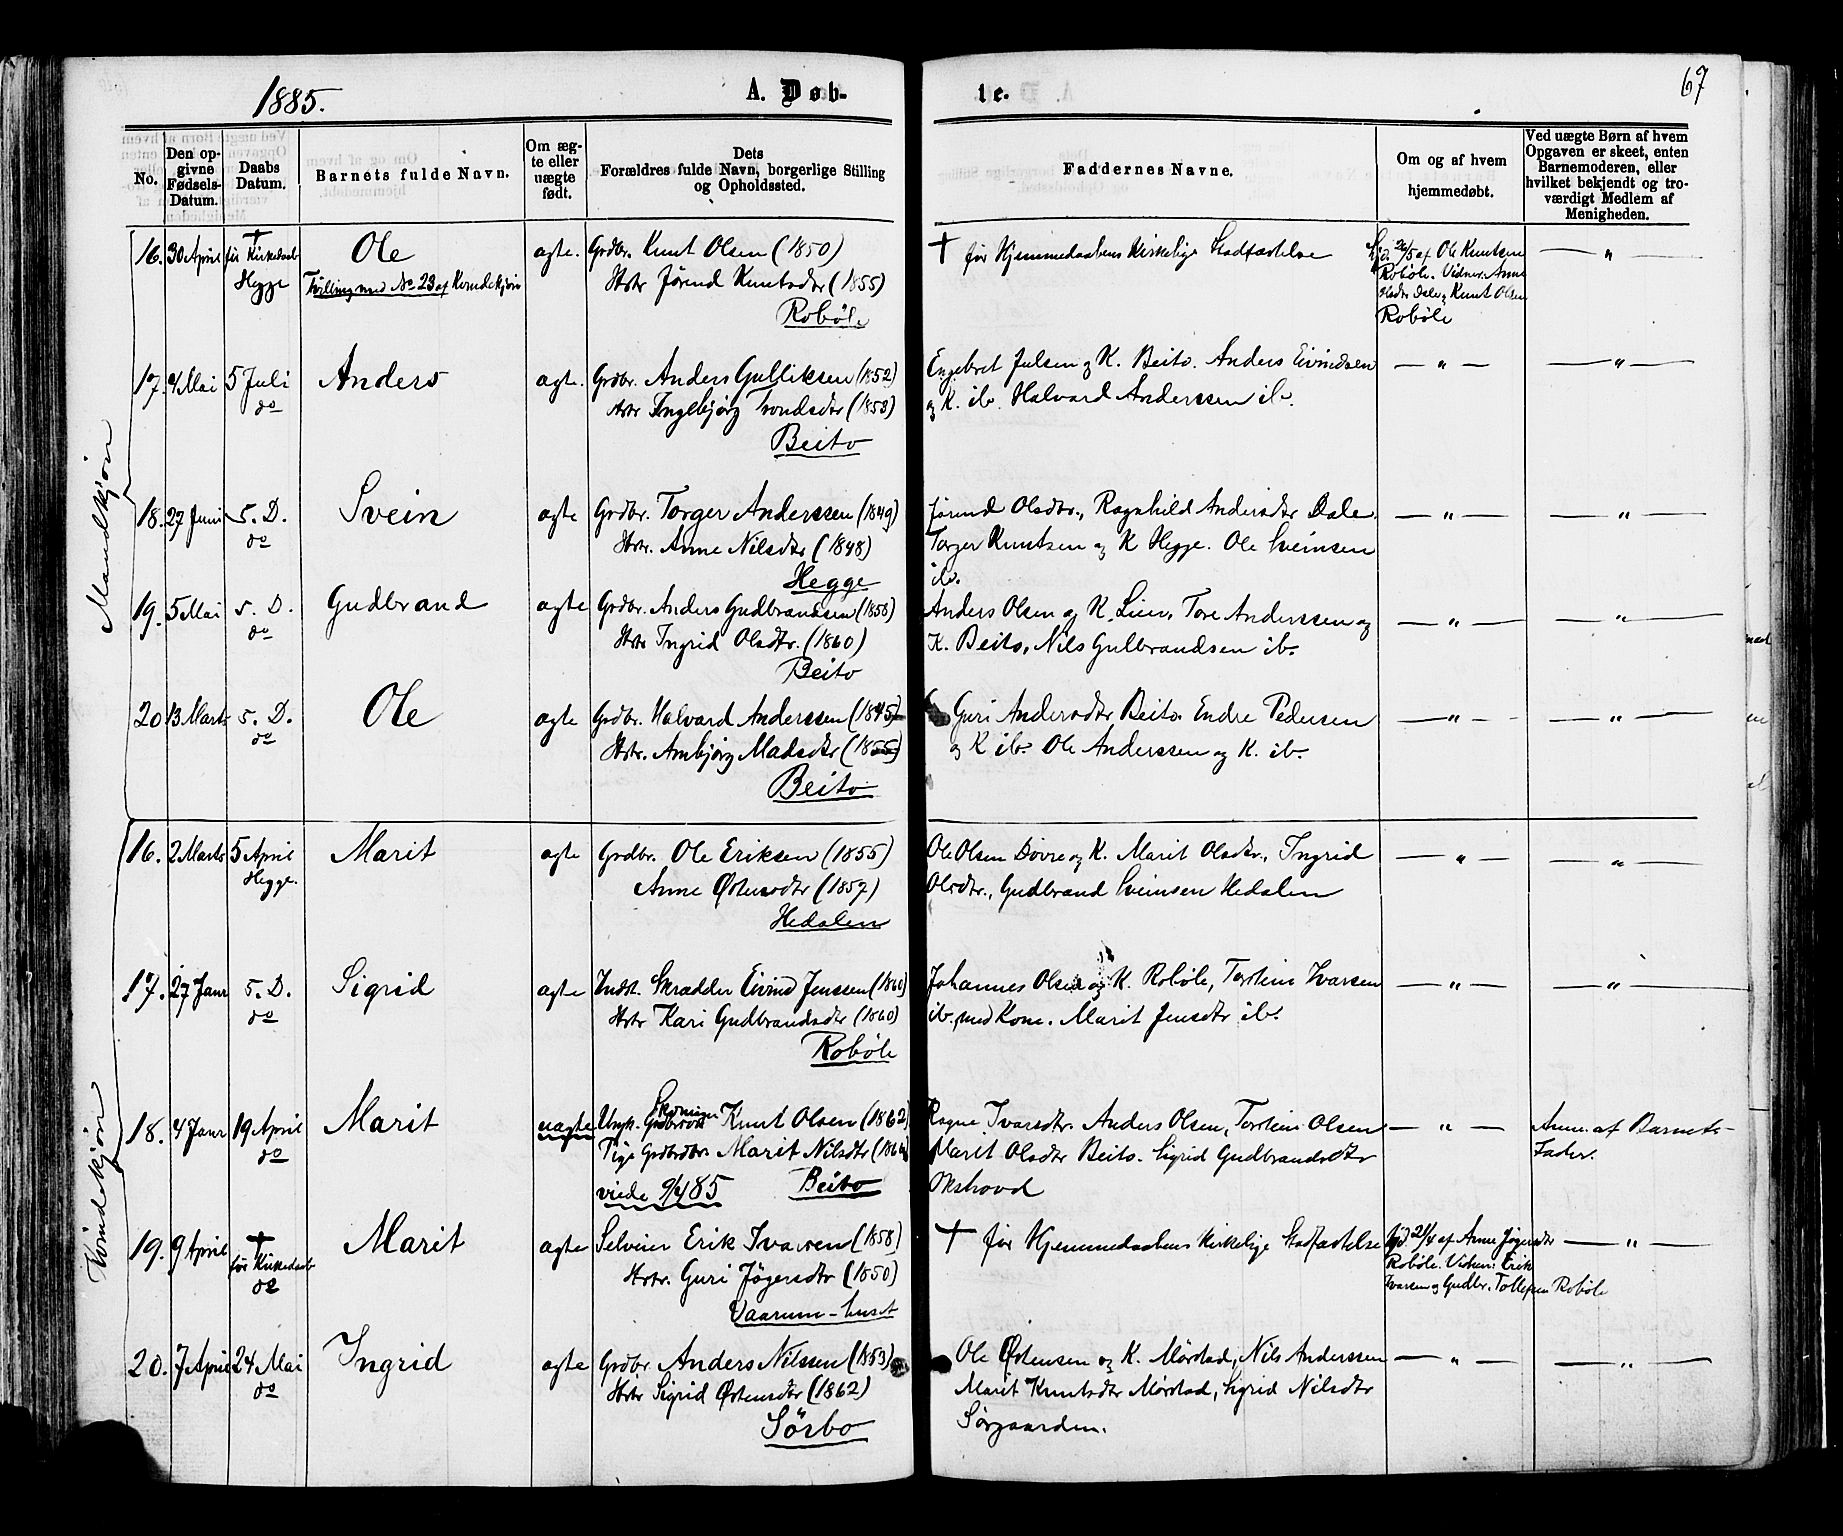 1885.
A. Døb-
te.
67
No.
Den op-
givne
Fødsels-
Datum.
Daabs
Datum.
Barnets fulde Navn.
Om æg-
te eller
uægte
født.
Dets
Forældres fulde Navn, borgerlige Stilling
og Opholdssted.
Faddernes Navne.
Om og af hvem
hjemmedøbt.
Ved uægte Børn af hvem
Opgaven er skeet, enten
Barnemoderen, eller
hvilket bekjendt og tro-
værdigt Medlem af
Menigheden.
Mandkjøn
16. 30 April † før Kirkedaab Hegge
Ole
Tvilling med No 23 af Kvindekjøn
ægte.
Grdbr. Knut Olsen (1850)
Hstr Jørund Knutsdtr (1855)
Robøle
† før Hjemmedaabens Kirkelige Stadfæstelse
26/5 af Ole Knutsen
Robøle. Vidner. Anne
Dale og Knut Olsen
Robøle
— " —
17. 4 Mai 5 Juli do
Anders
ægt.
Grdbr. Anders Gulliksen (1852)
Hstr Ingebjørg Trondsdtr (1858)
Beito
Engebret Julsen og K. Beito. Anders Eivindsen
og K. ib. Halvard Anderssen ib.
— " —
— " —
18. 27 Juni 5. D. do
Svein
ægte
Grdbr. Torger Anderssen (1849)
Hstr. Anne Nilsdtr (1848)
Hegge
Jørund Olsdtr., Ragnhild Andersdtr Dale.
Torger Knutsen og K Hegge. Ole Sveinsen
ib.
— " —
— " —
19. 5 Mai 5. D. do
Gudbrand
ægte
Grdbr. Anders Gudbrandsen (1858)
Hstr Ingrid Olsdtr. (1860)
Beito
Anders Olsen og K. Lien, Tore Anderssen og
K. Beito, Nils Gulbrandsen ib.
— " —
— " —
20. 13 Marts 5. D. do
Ole
ægte
Grdbr. Halvard Anderssen (1845)
Hstr. Ambjørg Madsdtr (1855)
Beito
Guri Andersdtr Beito. Endre Pedersen
og K ib. Ole Anderssen og K. ib.
— " —
— " —
Kvindekjøn
16. 2 Marts 5 April Hegge.
Marit
ægte
Grdbr. Ole Eriksen (1855)
Anne Østensdtr (1857)
Hedalen
Ole Olsen Dovre og K. Marit Olsdtr., Ingrid
Olsdtr., Gudbrand Sveinsen Hedalen
— " —
— " —
17. 27 Janr 5. D. do
Sigrid
ægte
Indst. Skrædder Eivind Jenssen (1860)
Hstr Kari Gudbrandsdtr (1860)
Robøle
Johannes Olsen og K. Robøle, Torstein Ivarsen
ib. med Kone. Marit Jensdtr ib.
— " —
— " —
18. 4 Janr 19 April do
Marit
uægte
Ungk. Knut Olsen (1862)
Pige Grdbrdtr. Marit Nilsdtr
viede 9/4 85 Beito
Ragne Ivarsdtr. Anders Olsen, Torstein Olsen
Marit Olsdtr Beito. Sigrid Gudbrandsdtr
Okshovd
— " —
Anm. af Barnets
Fader.
19. 9 April † før Kirkedaab do
Marit
ægte
Selveier Erik Ivarsen (1858)
Hstr. Guri Jøgersdtr (1850)
Vaarum-huset
† før Hjemmedaabens Kirkelige Stadfæstelse
Hjd. 21/4 af Anne Jøgersdtr
Robøle. Vidner: Erik
Ivarsen og Gudbr. Tollefsen Robøle
— " —
20. 7 April 24 Mai do
Ingrid
ægte
Grdbr. Anders Nilssen (1853)
Hstr Sigrid Østensdtr (1862)
Sørbo
Ole Østensen og K. Mørstad, Nils Anderssen
Marit Knutsdtr Mørstad, Sigrid Nilsdtr
Sørgaarden.
— " —
— " —